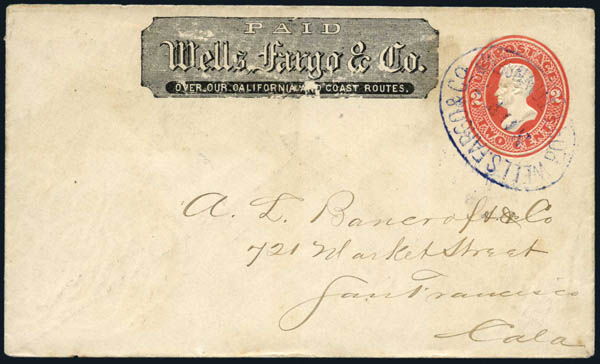 PAID
Wells, Fargo & Co.
OVER OUR CALIFORNIA AND COAST ROUTES.
U.S. POSTAGE
TWO CENTS
2 2
WELLS FARGO & CO.
A. L. Bancroft & Co
721 Market Street
San Francisco
Cala